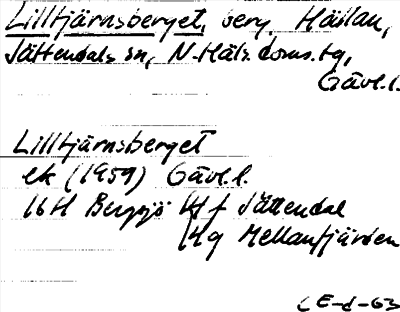 Lilltjärnsberget, berg, Hädlan,
Jättendals sn, N. Häls. doms. tg,
Gävl. l.
Lilltjärnsberget
ek (1959) Gävl. l.
16H Bergsjö 4f Jättendal
4g Mellanfjärden
LE-d-63